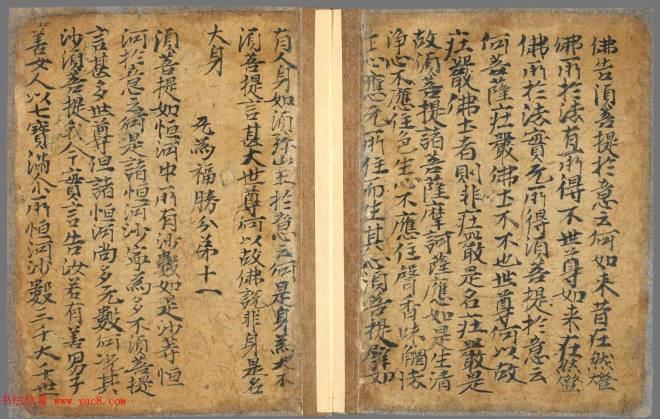 佛告須菩提於意云何如来昔在然燈
佛所於法有所得不世尊如来在然燈
佛所於法實无所得須菩提於意云
何菩薩庄嚴佛土不不也世尊何以故
庄嚴佛土者則非庄嚴是名庄嚴是
故須菩提諸菩薩摩訶薩應如是生清
净心不應住色生心不應住聲香味觸法
生心應无所住而生其心須菩提譬如
有人身如須弥山王於意云何是身為大不
須菩提言甚大世尊何以故佛說非身是名
大身
无為福勝分第十一
須菩提如恒河中所有沙數如是沙等恒
河於意云何是諸恒河沙寧為多不須菩提
言甚多世尊但諸恒河尚多无數何況其
沙須菩提我今實言告汝若有善男子
善女人以七寶滿尒所恒河沙數三千大千世
书法欣赏
www.yac8.com